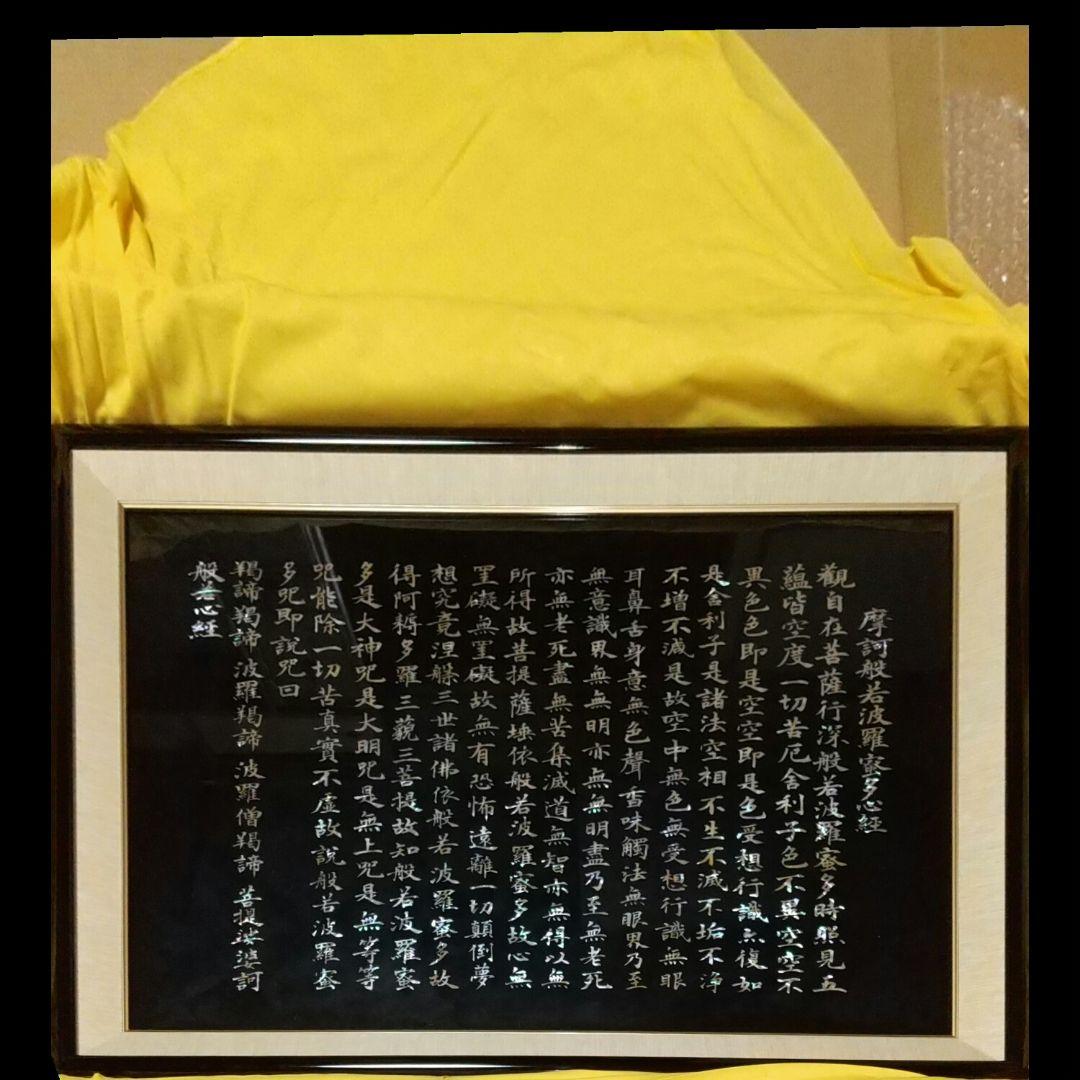 摩訶般若波羅蜜多心經
觀自在菩薩行深般若波羅蜜多時照見五
蘊皆空度一切苦厄舍利子色不異空空不
異色色即是空空即是色受想行識亦復如
是舍利子是諸法空相不生不滅不垢不淨
不增不減是故空中無色無受想行識無眼
耳鼻舌身意無色聲香味觸法無眼界乃至
無意識界無無明亦無無明盡乃至無老死
亦無老死盡無苦集滅道無智亦無得以無
所得故菩提薩埵依般若波羅蜜多故心無
罣礙無罣礙故無有恐怖遠離一切顛倒夢
想究竟涅槃三世諸佛依般若波羅蜜多故
得阿耨多羅三藐三菩提故知般若波羅蜜
多是大神咒是大明咒是無上咒是無等等
咒能除一切苦真實不虛故說般若波羅蜜
多咒即說咒曰
羯諦羯諦 波羅羯諦 波羅僧羯諦 菩提娑婆訶
般若心經